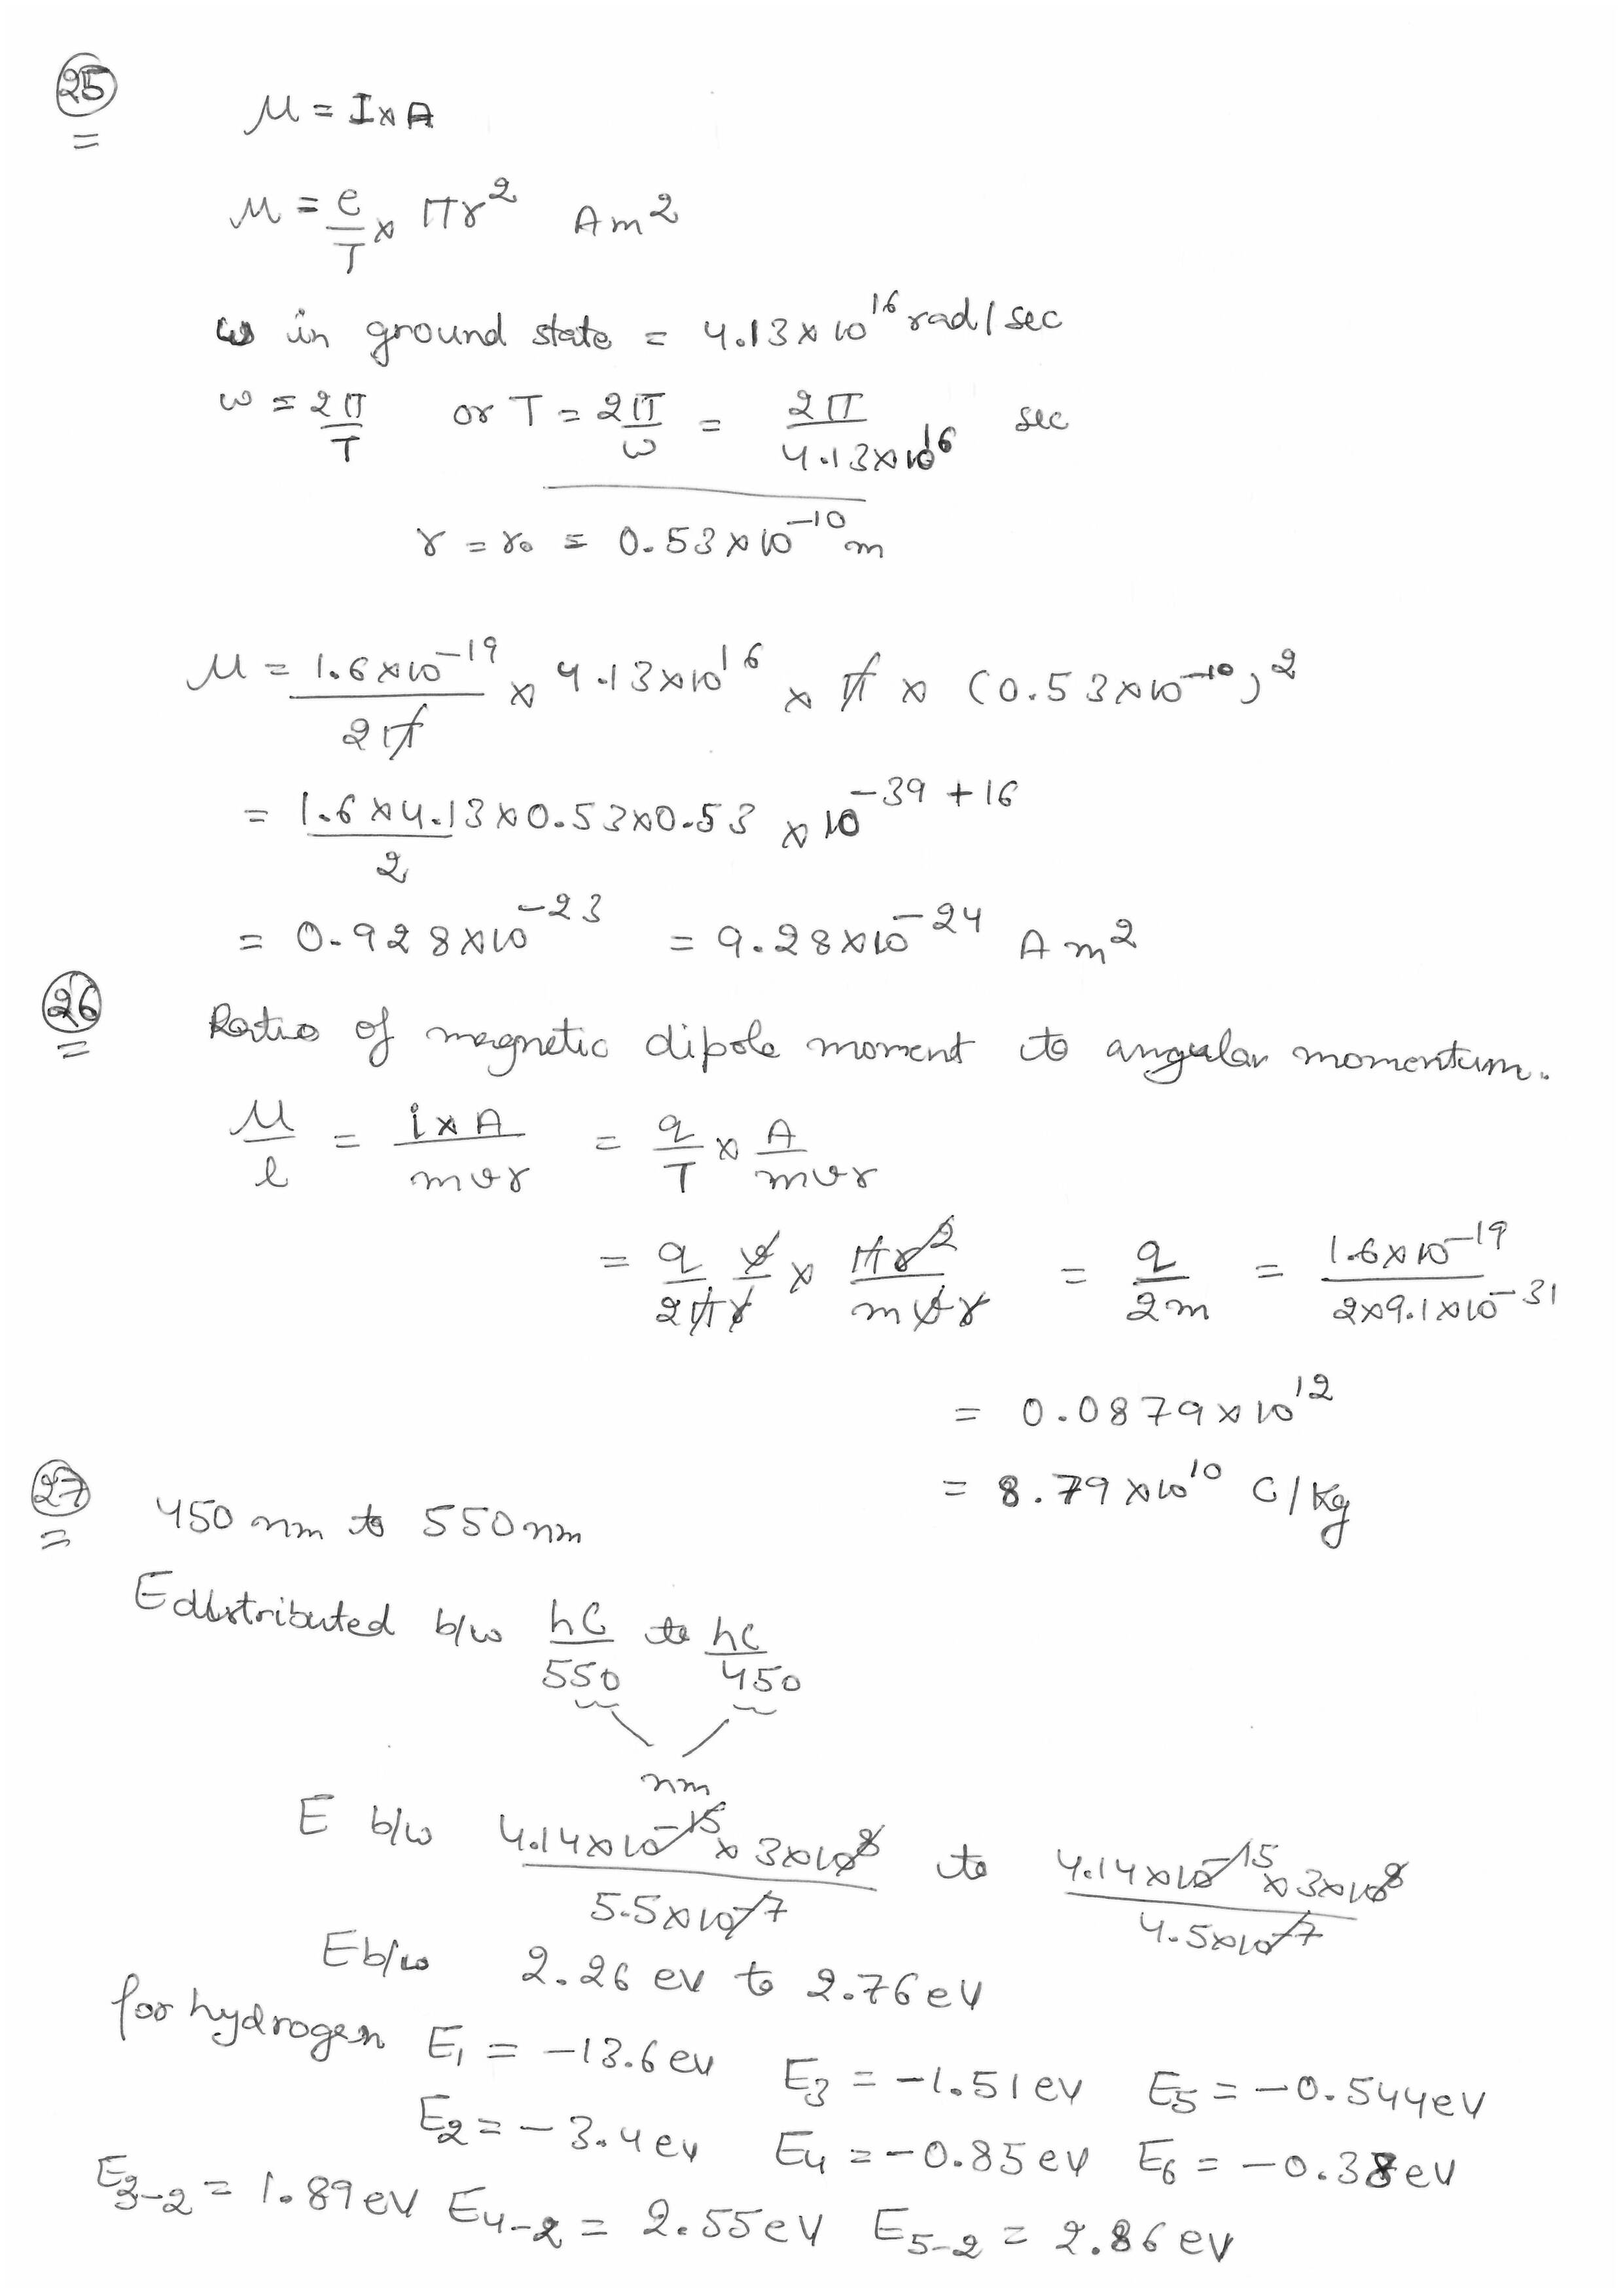 25
μ = I × A
μ = e/T × πr² Am²
ω in ground state = 4.13×10¹⁶ rad/sec
ω = 2π/T or T = 2π/ω = 2π/4.13×10¹⁶ sec
r = r₀ = 0.53×10⁻¹⁰ m
μ = 1.6×10⁻¹⁹/2π × 4.13×10¹⁶ × π × (0.53×10⁻¹⁰)²
= 1.6×4.13×0.53×0.53/2 × 10⁻³⁹⁺¹⁶
= 0.928×10⁻²³ = 9.28×10⁻²⁴ Am²
26 Ratio of magnetic dipole moment to angular momentum.
μ/l = i×A/mvr = q/T × A/mvr
= q/2πr v × πr²/mvr = q/2m = 1.6×10⁻¹⁹/2×9.1×10⁻³¹
= 0.0879×10¹²
= 8.79×10¹⁰ C/kg
27 450 nm to 550 nm
E distributed b/w hC/550 to hC/450
nm
E b/w 4.14×10⁻¹⁵×3×10⁸/5.5×10⁻⁷ to 4.14×10⁻¹⁵×3×10⁸/4.5×10⁻⁷
E b/w 2.26 ev to 2.76 eV
for hydrogen E₁ = -13.6 ev E₃ = -1.51 ev E₅ = -0.544 eV
E₂ = -3.4 ev E₄ = -0.85 ev E₆ = -0.38 eV
E₃₋₂ = 1.89 eV E₄₋₂ = 2.55 eV E₅₋₂ = 2.86 eV